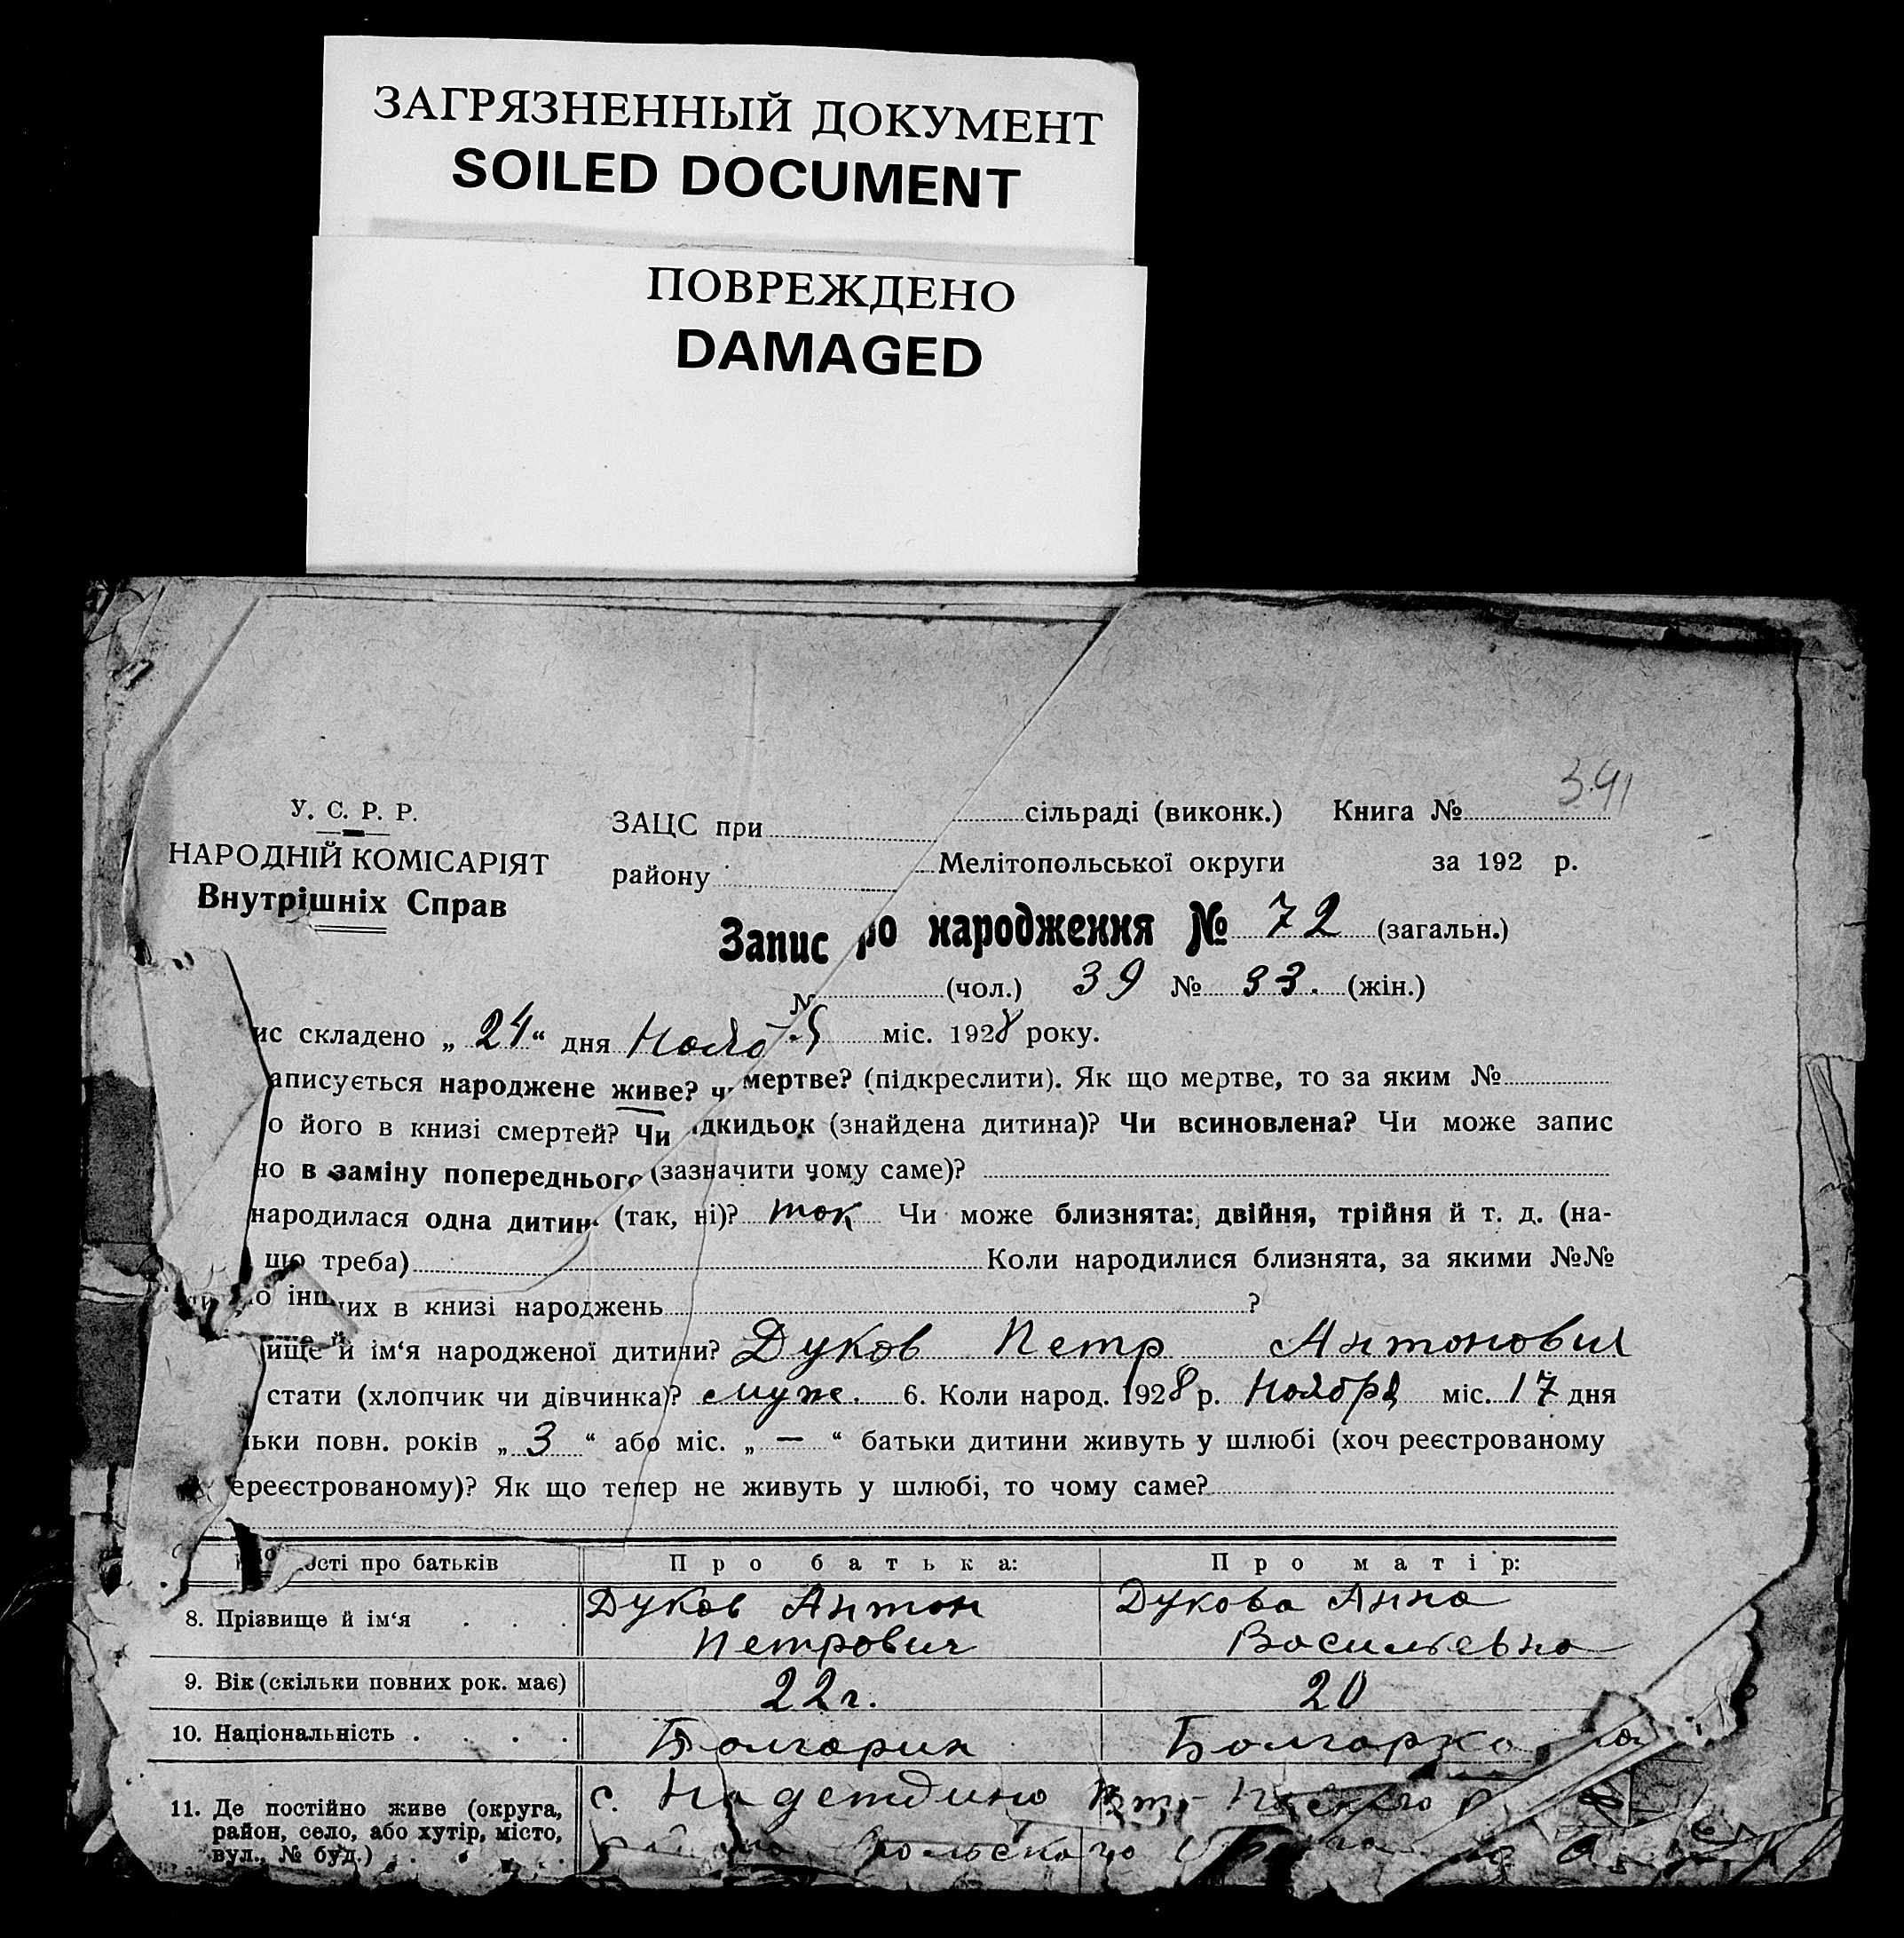 ЗАГРЯЗНЕННЫЙ ДОКУМЕНТ
SOILED DOCUMENT
ПОВРЕЖДЕНО
DAMAGED
391
У. С. Р. Р.
НАРОДНІЙ КОМІСАРІЯТ
Внутрішніх Справ
ЗАЦС при сільраді (виконк.) Книга №
району Мелітопольської округи за 192 р.
Запис ро народження № 72 (загальн.)
№ (чол.) 39 № 33. (жін.)
ис складено „ 24 “ дня міс. 1928 року.
аписується народжене живе? ч мертве? (підкреслити). Як що мертве, то за яким №
о його в книзі смертей? Чи ідкидьок (знайдена дитина)? Чи всиновлена? Чи може запис
но в заміну попереднього (зазначити чому саме)?
народилася одна дитин (так, ні)? так Чи може близнята: двійня, трійня й т. д. (на-
що треба) Коли народилися близнята, за якими №№
о інших в книзі народжень ?
ище й ім‘я народженої дитини? Дуков Петр Антонович
стати (хлопчик чи дівчинка)? муж. 6. Коли народ. 1928 р. Ноября міс. 17 дня
льки повн. років „ 3 “ або міс. „ — “ батьки дитини живуть у шлюбі (хоч реєстрованому
ереєстрованому)? Як що тепер не живуть у шлюбі, то чому саме?
ості про батьків Про батька: Про матір:
8. Прізвище й ім‘я . . . Дуков Антон Петрович Дукова Анна Васильевна
9. Вік (скільки повних рок. має) 22 г. 20
10. Національність . . . . Болгарин Болгарка
11. Де постійно живе (округа, с. Надеждино
район, село, або хутір, місто,
вул., № буд.) . . . .